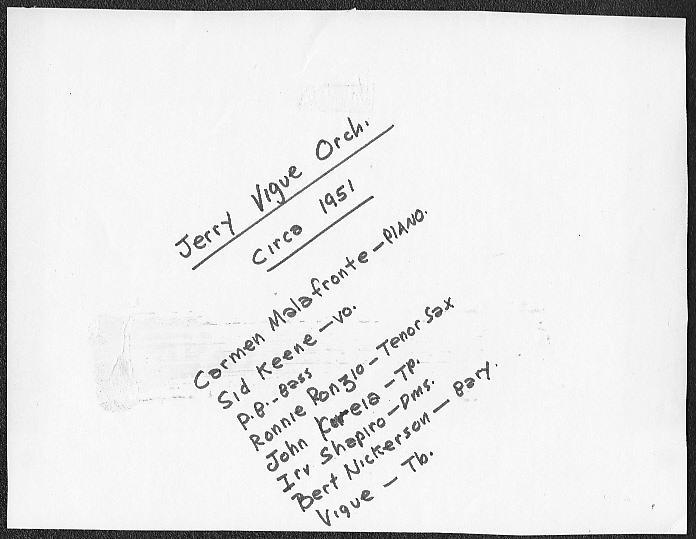 Jerry Vigue Orch.
Circa 1951
Carmen Malafronte - PIANO.
Sid Keene - vo.
P.B. - Bass
Ronnie Ronzio - Tenor Sax
John - Tp.
Irv Shapiro - Dms.
Bert Nickerson - Bary.
Vigue - Tb.